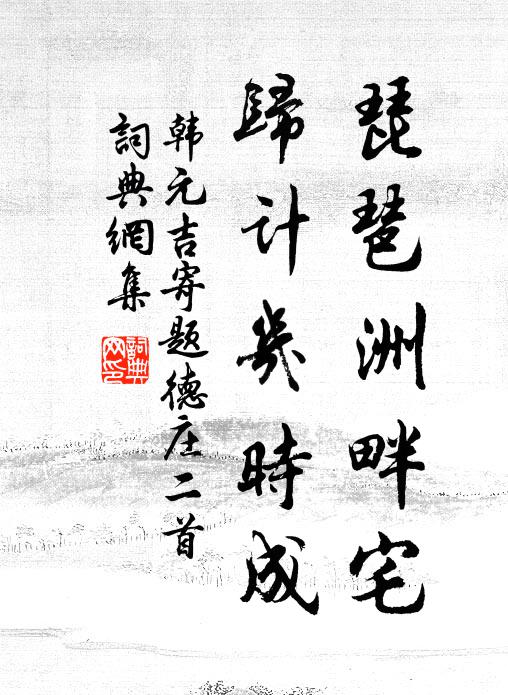 琵琶洲畔宅
歸计幾時成
韩元吉寄题德庄二首
詞典網集
詞典
网印